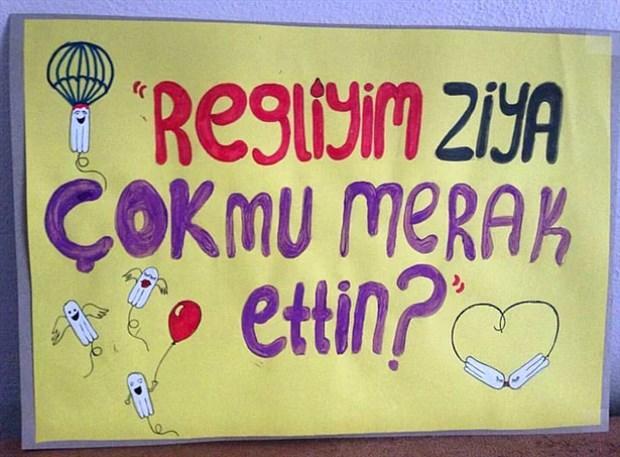 "Regliyim ZiYA
ÇOKMU MERAK
ettin?"